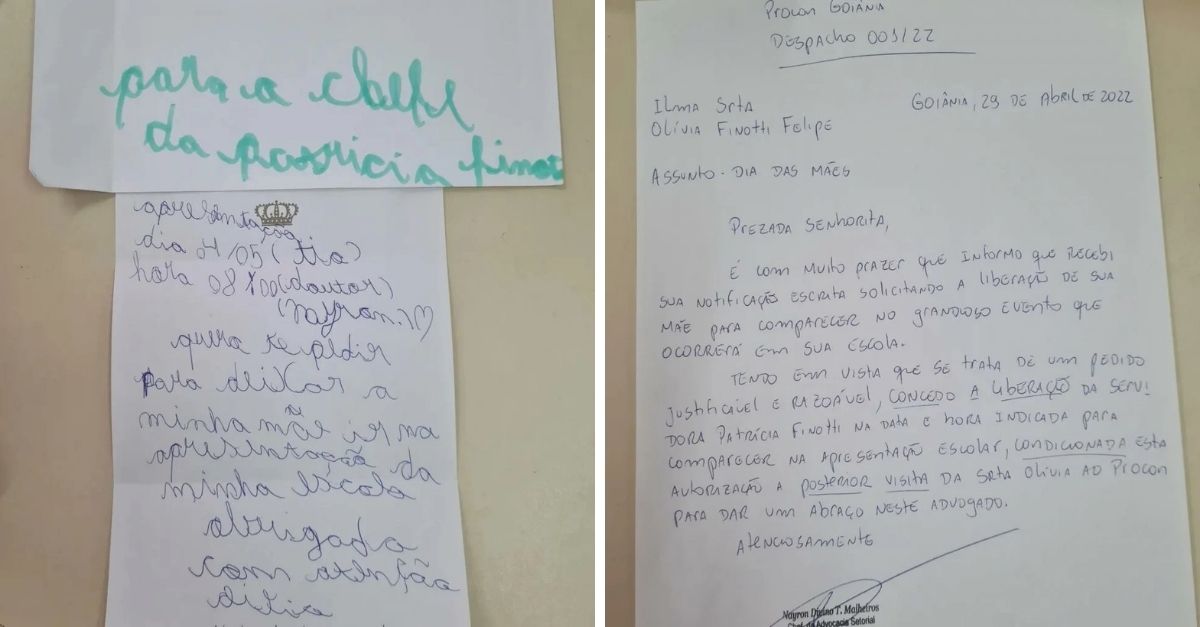 para a cheffe
da parricia finot
apresentação
dia 04/05 (tia)
hora 08:00 (doutor)
(Nayron.) ♡
quera te pedir
para deixar a
minha mãe ir na
apresentação da
minha escola
obrigada
com atenção
Procon Goiânia
Despacho 001/22
Ilma Srta
Olívia Finotti Felipe
Goiânia, 29 de Abril de 2022
Assunto - Dia das Mães
Prezada Senhorita,
É com muito prazer que informo que recebi
sua notificação escrita solicitando a liberação de sua
mãe para comparecer no grandioso evento que
ocorrerá em sua escola.
Tendo em vista que se trata de um pedido
justificável e razoável, concedo a liberação da servi
dora Patrícia Finotti na data e hora indicada para
comparecer na apresentação escolar, condicionada esta
autorização a posterior visita da Srta Olívia ao Procon
para dar um abraço neste advogado.
Atenciosamente
Nayron T. Malheiros
Advocacia Setorial